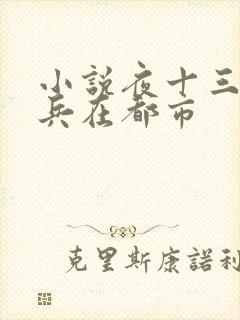 小說夜十三
兵在都市
克里斯康諾利